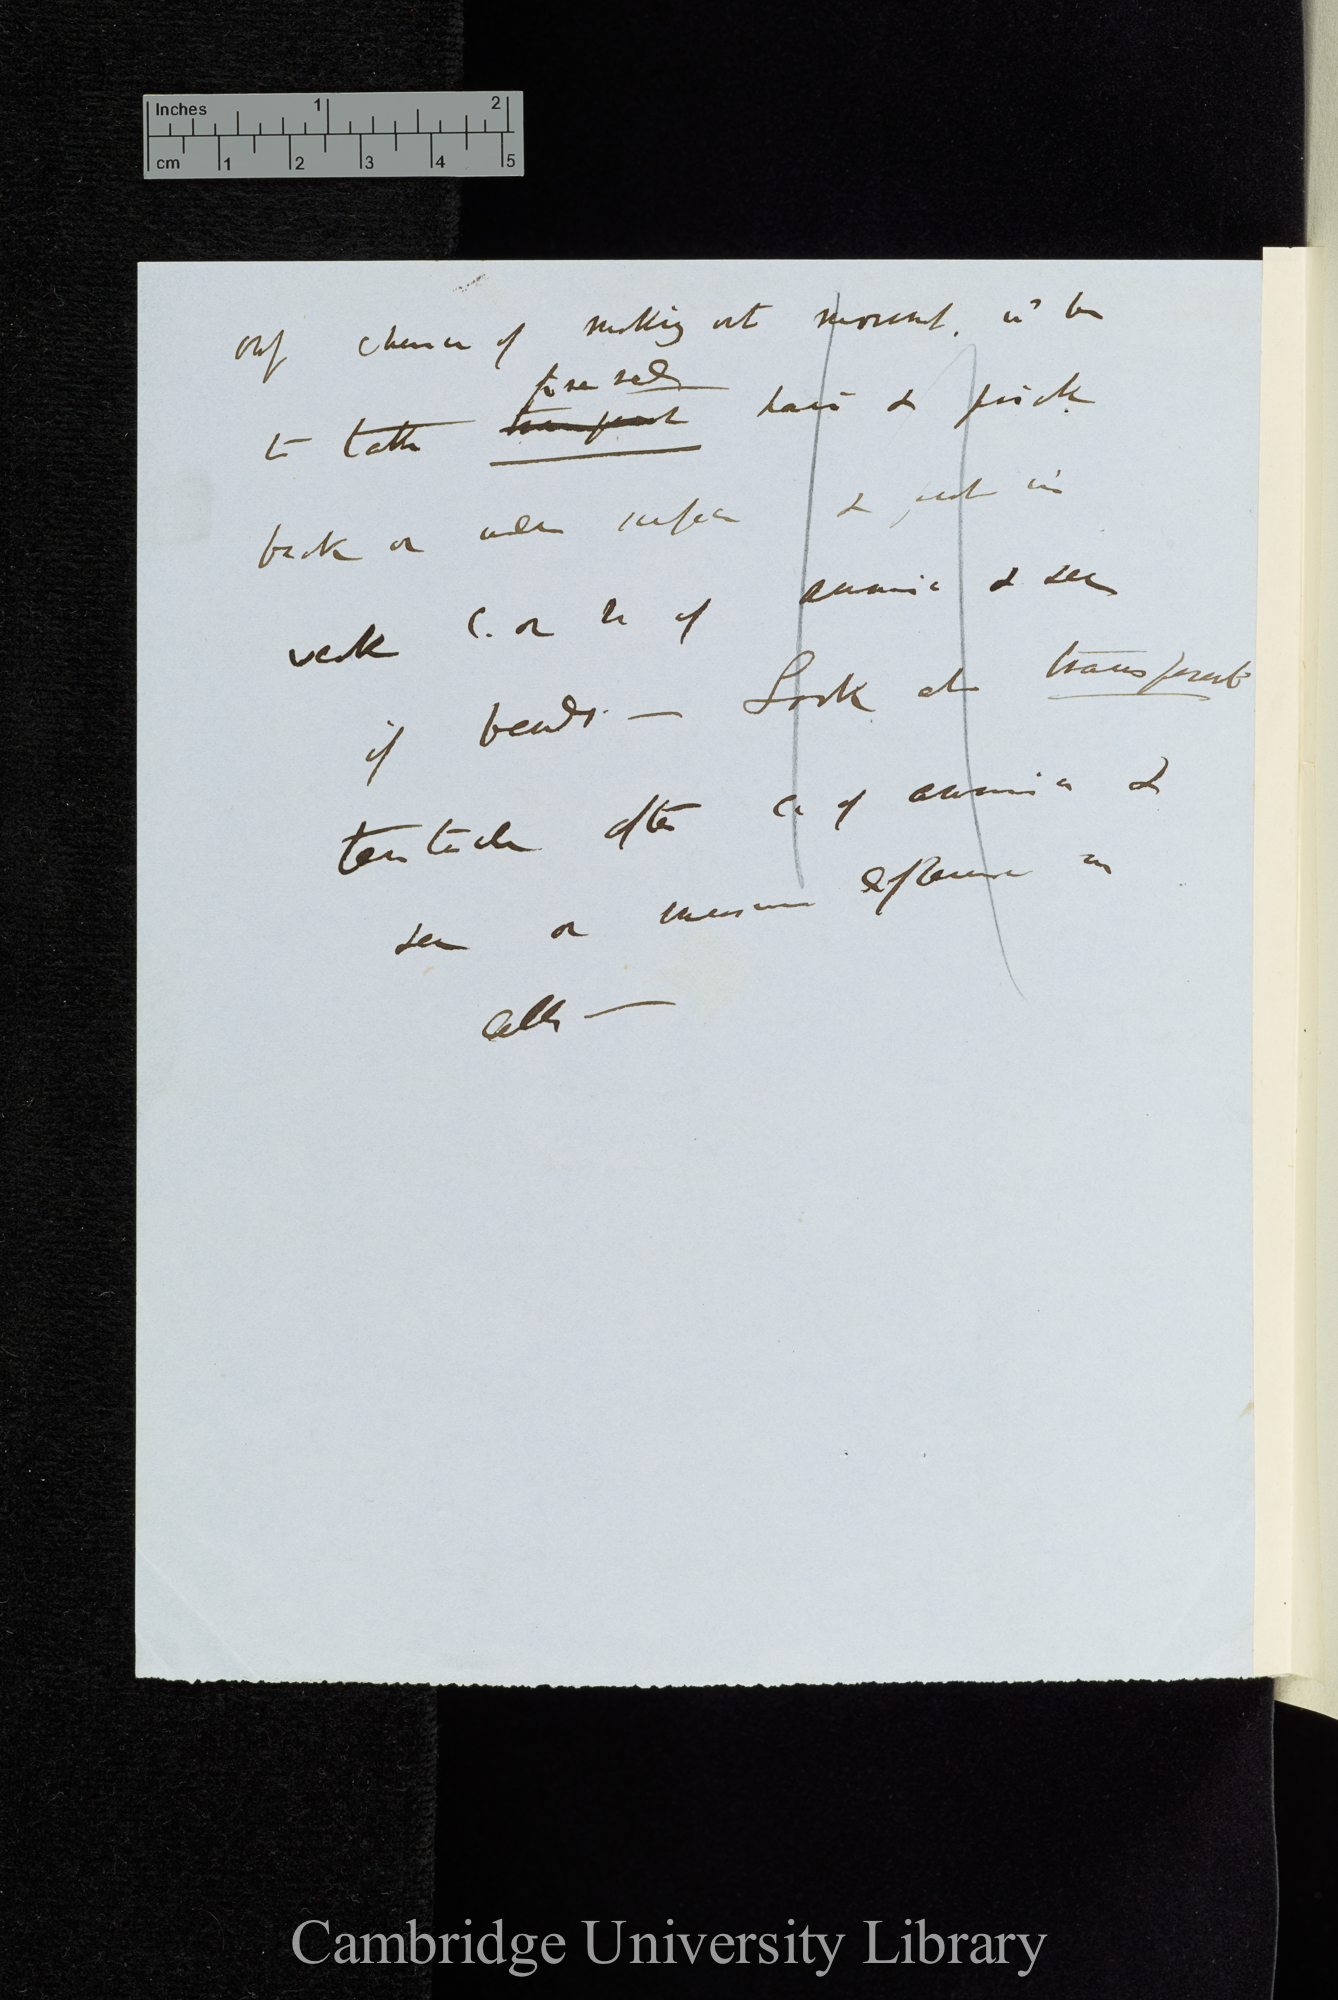 Inches 1 2
cm 1 2 3 4 5
only chance of making out movement, wd be
to take transparent hair & prick
back or under surface & put in
weak C. or N of ammonia & see
if bends. — Look at transparent
tentacle after C. of ammonia &
see or measure difference in
cells —
Cambridge University Library